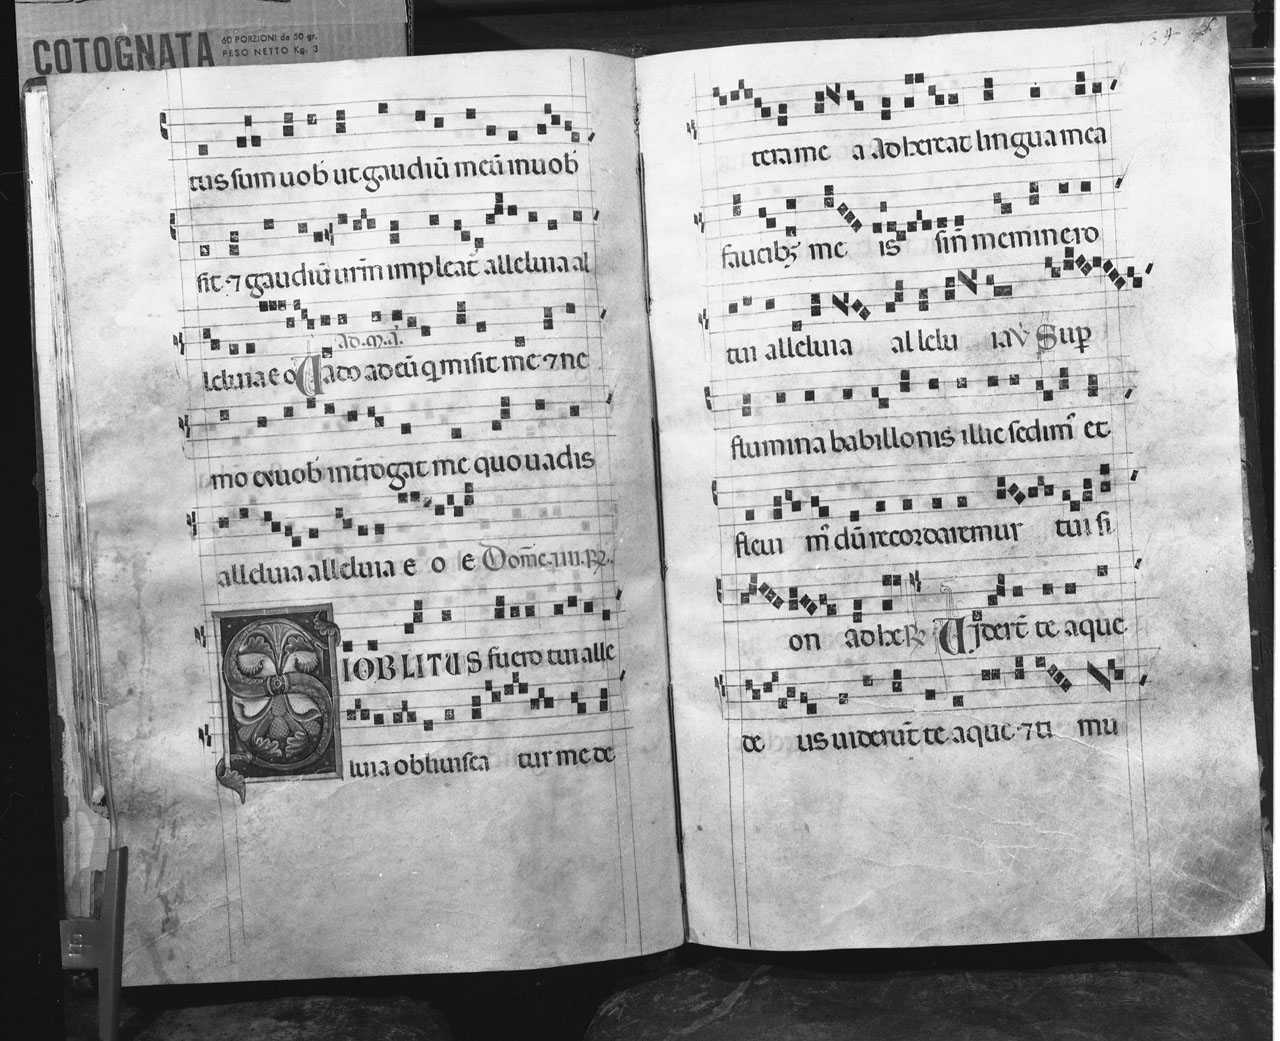 COTOGNATA
60 PORZIONI da 50 gr.
PESO NETTO Kg. 3
tus sum uob ut gaudiū meū in uob
sit ⁊ gaudiū urm̄ impleat̄ alleluia al
ad. m̄. a.
leluia e o Uado ad eū q̄ misit me ⁊ ne
mo ex uob int̄rogat me quo uadis
alleluia alleluia e o e Domc̄. iiii. ℟.
SIOBLITUS fuero tui alle
luia obliuisca tur me de
34
tera me a Adhereat lingua mea
faucibꝫ me is sin̄ meminero
tui alleluia allelu ia ℣ Sup
flumina babillonis illic sedim᷒ et
fleui m᷒ dū recordaremur tui si
on adhe ℟ Uiderūt te aque
de us uiderūt te aque ⁊ ti mu